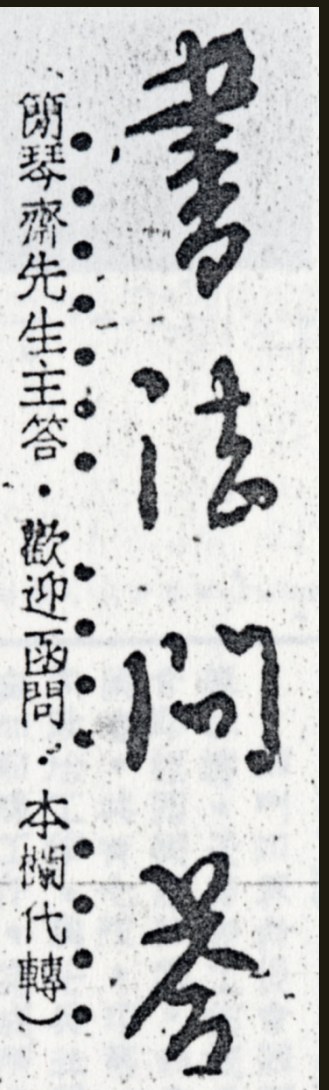 書法問答
簡琴齋先生主答·歡迎函問·本欄代轉)